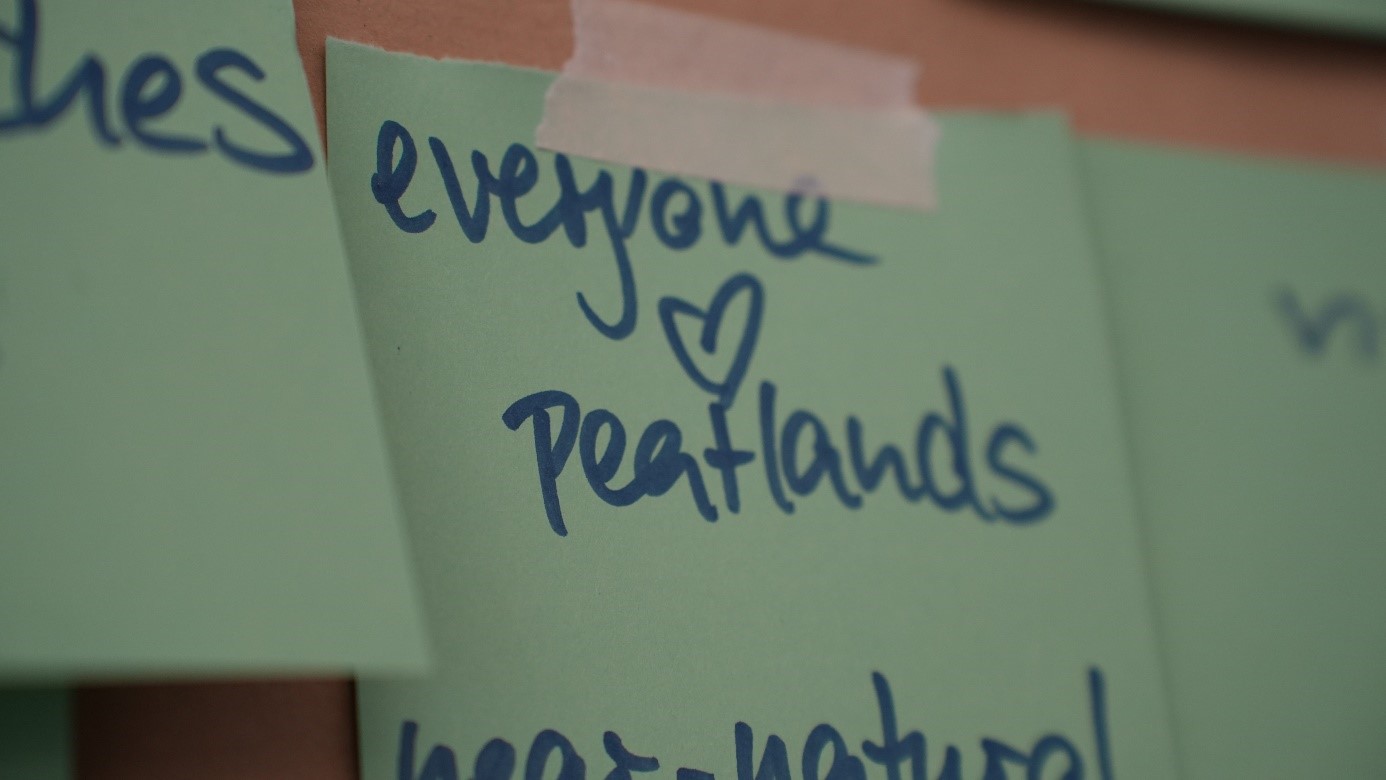 everyone
♡
Peatlands
near-natural